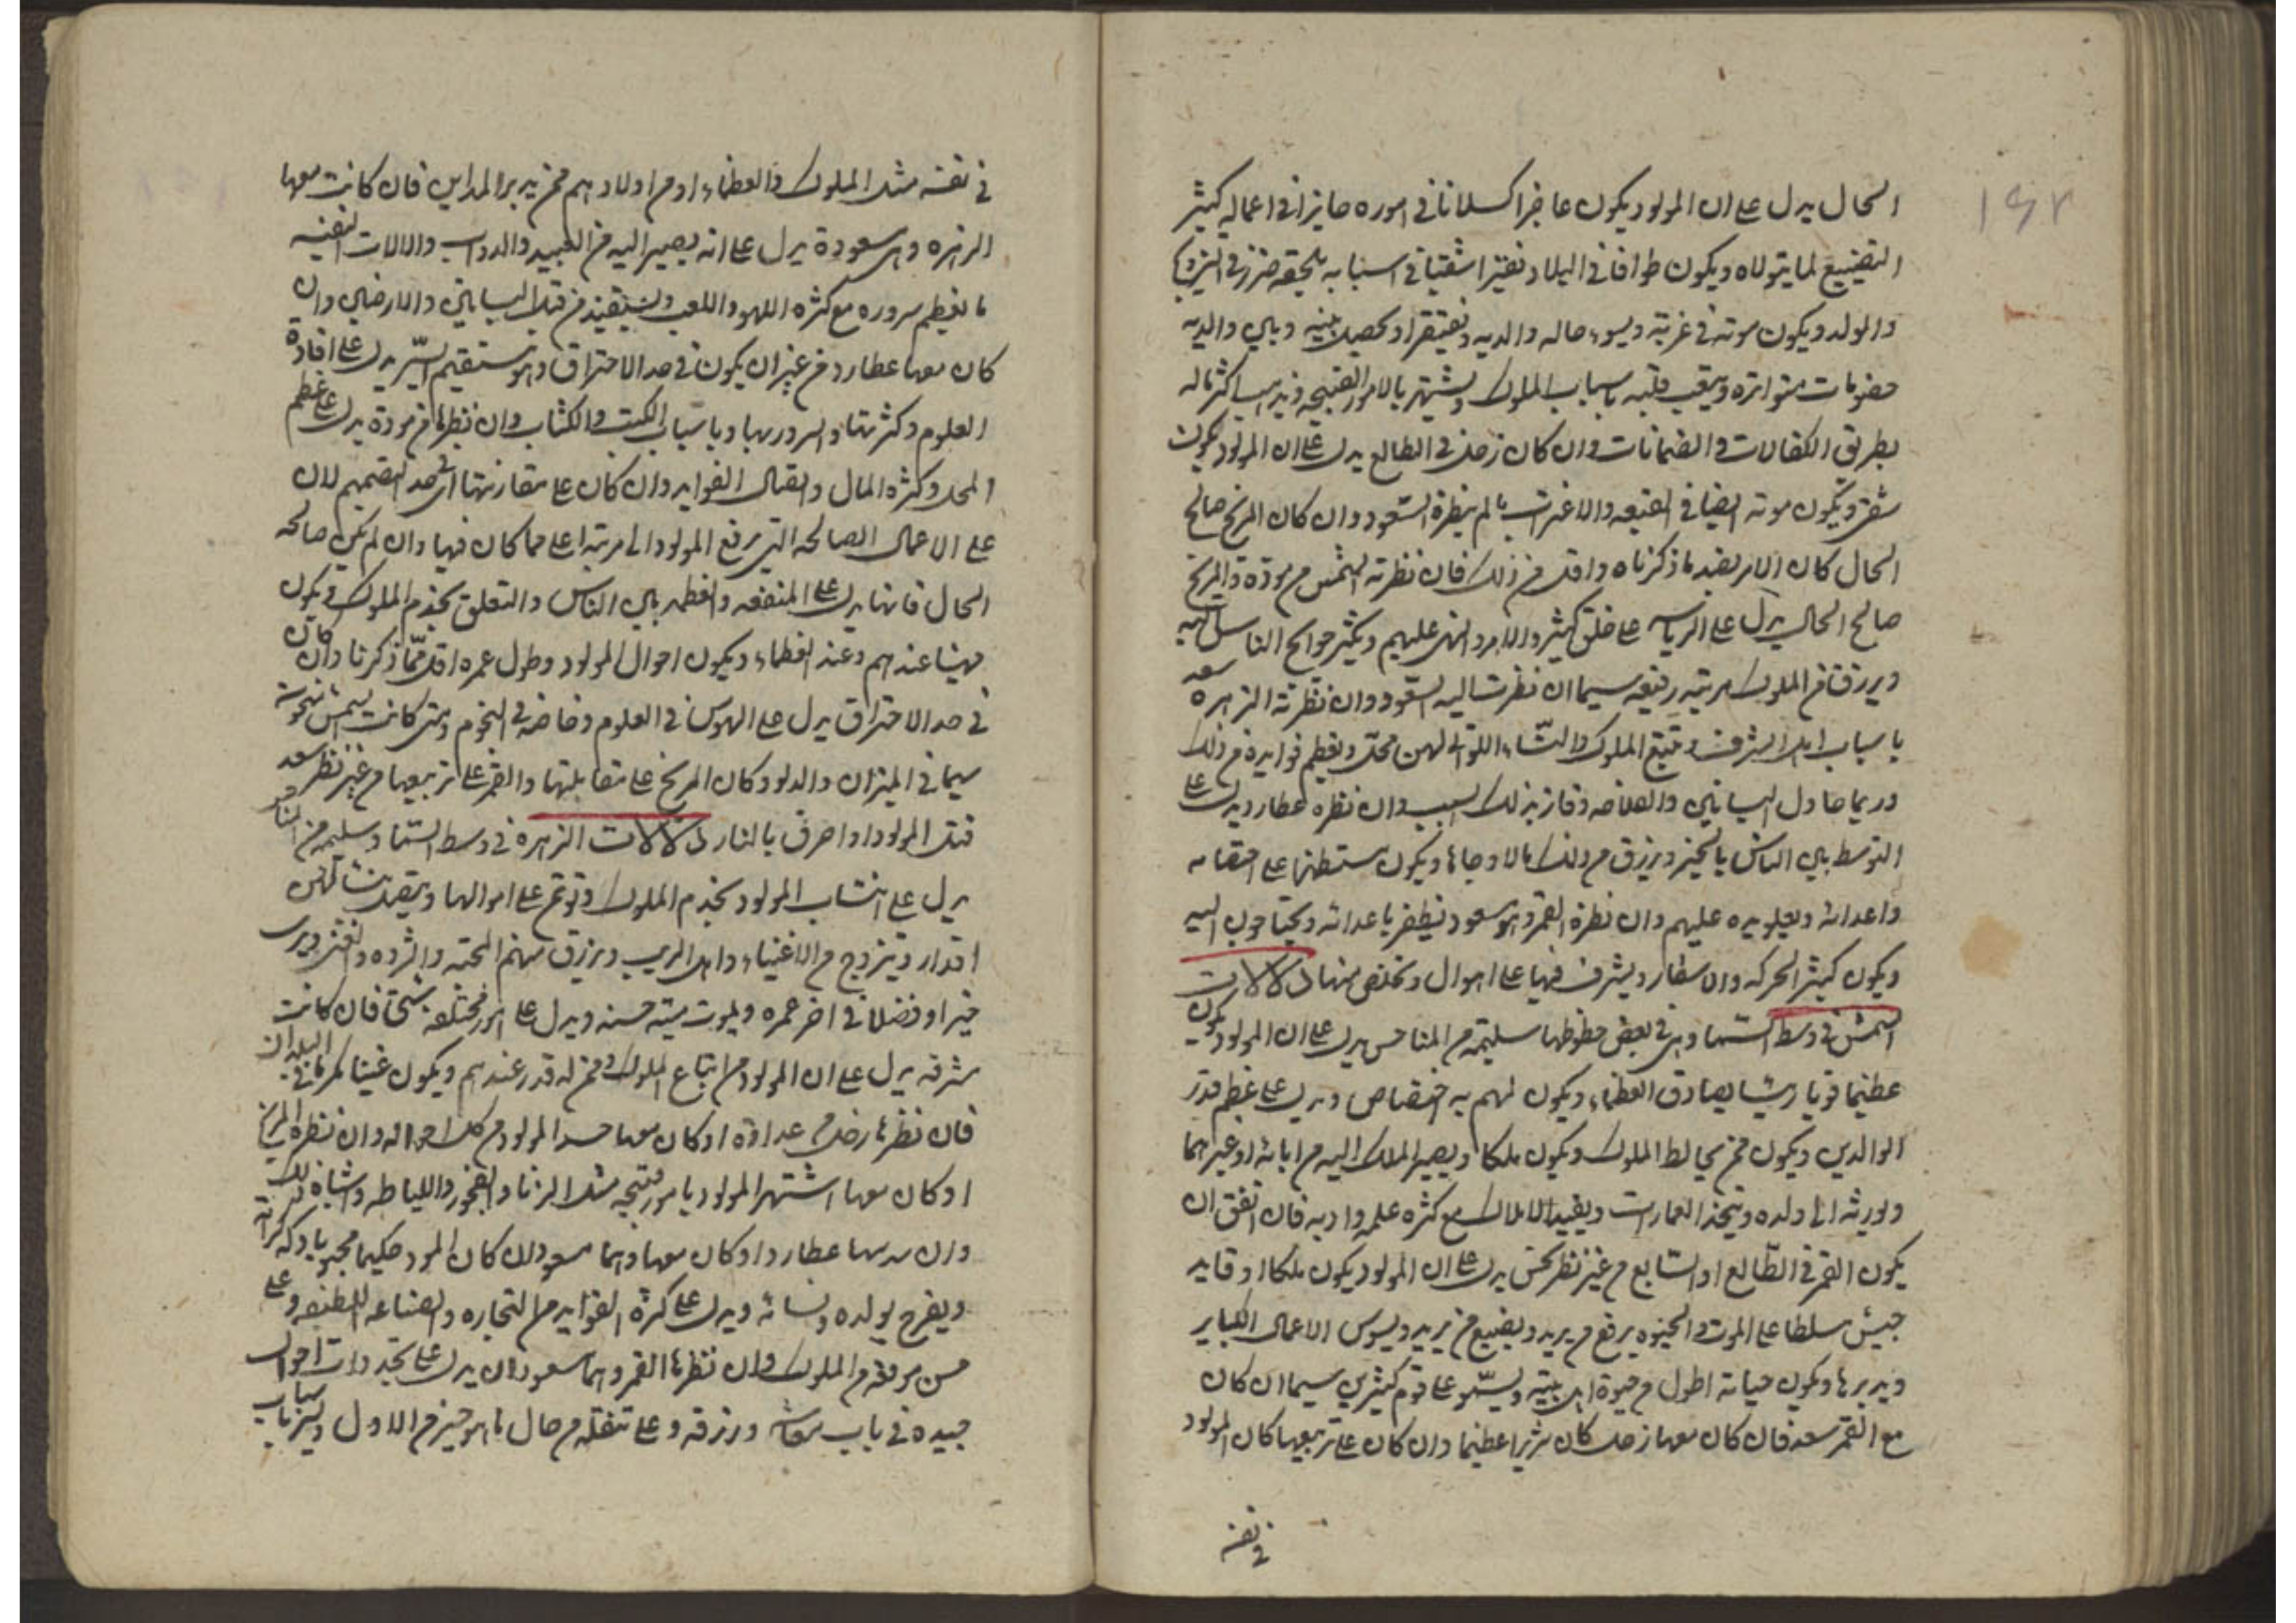 ١٤٢
الحال يدل على ان المولود يكون عاجزا كسلانا فى اموره حايرا فى اعماله كثير
التضييع لما يتولاه ويكون طوافا فى البلاد فقيرا شقيا فى اسبابه يلحقه ضرر فى التزويج
والولد ويكون موته فى غربة ويسوء حاله والديه ويفتقرا ويحصل بينه وبين والديه
خصومات متواترة ويتعب قلبه باسباب الملوك ويشتهر بالامور القبيحه ويذهب اكثر ماله
بطريق الكفالات والضمانات وان كان زحل فى الطالع يدل على ان المولود يكون
ويكون موته ايضا فى الضيعه والاغتراب ما لم ينظره السعود وان كان المريخ صالح
الحال كان الامر بضد ما ذكرناه واقل من ذلك فان نظرته الشمس من مودة والمريخ
صالح الحال يدل على الرياسه على خلق كثير والامر والنهى عليهم ويكثر حوايج الناس اليه
ويرزق من الملوك مرتبه رفيعه سيما ان نظرت اليه السعود وان نظرته الزهره سعد
باسباب اهل الشرف وتبع الملوك والنساء اللواتى لهن محل ويعظم فوايده من ذلك
وربما حاول البساتين والفلاحه وفاز بذلك السبب وان نظره عطارد يدل على
التوسط بين الناس بالخير ويرزق من ذلك مالا وجاها ويكون مستظهرا على
واعدائه ويعلو يده عليهم وان نظره القمر وهو مسعود يظفر باعدائه ويحتاجون اليه
ويكون كثير الحركه والاسفار ويشرف فيها على اهوال ويخلص منها دلالات
الشمس فى وسط السما وهى فى بعض حظوظها سليمه من المناحس يدل على ان المولود يكون
عظيما قويا رئيسا يصادق العظماء ويكون لهم به اختصاص ويدل على عظم قدر
الوالدين ويكون ممن يخالط الملوك ويكون ملكا ويصير الملك اليه من ابائه او غيرهما
ويورثه الى ولده ويتخذ العمارات ويفيد الاملاك مع كثره علمه وادبه فان اتفق ان
يكون القمر فى الطالع او السابع من غير نظر نحس يدل على ان المولود يكون ملكا او قايد
جيش مسلطا على الموت والحيوه يرفع من يريد ويضيع من يريد ويسوس الاعمال الكباير
ويدبرها ويكون حياته اطول من حيوة اهل بيته ويسمو على قوم كثيرين سيما ان كان
مع القمر سعد فان كان معها زحل كان شريرا عظيما وان كان على تربيعها كان المولود
فى نفسه
فى نفسه مثل الملوك والعظماء او من اولادهم ممن يدبر المداين فان كانت معها
الزهره وهى مسعودة يدل على انه يصير اليه من العبيد والدواب والالات النفيسه
ما يعظم سروره مع كثره اللهو واللعب ويستفيد من قبل البساتين والاراضى وان
كان معها عطارد من غير ان يكون فى حد الاحتراق وهو مستقيم السير يدل على افادة
العلوم وكثرتها والسرور بها وباسباب الكتب والكتاب وان نظرها من مودة يدل على عظم
المحل وكثره المال واتصال الفوايد وان كان على مقارنتها اى فى حد التصميم لان
على الاعمال الصالحه التى يرفع المولود الى مرتبه اعلى مما كان فيها وان لم يكن صالحه
الحال فانها يدل على المنفعه والعظمه بين الناس والتعلق بخدم الملوك ويكون
مهيبا عندهم وعند العظماء ويكون احوال المولود وطول عمره اقل مما ذكرنا وان كان
فى حد الاحتراق يدل على الهوس فى العلوم وخاصه فى النجوم ومتى كانت الشمس منحوسة
سيما فى الميزان والدلو وكان المريخ على مقابلتها والقمر على تربيعها من غير نظر سعد
قتل المولود او احرق بالنار دلالات الزهره فى وسط السما وسليمه من المناحس
يدل على انتساب المولود بخدم الملوك ويوتمن على اموالها ويتصل بنساء لهن
اقدار ويتزوج من الاغنياء واهل الريب ويرزق منهم المحبه والثروه والغنى ويرى
خيرا وفضلا فى اخر عمره ويموت ميته حسنه ويدل على امور مختلفه شتى فان كانت
شرقيه يدل على ان المولود من اتباع الملوك وممن له قدر عندهم ويكون غنيا مكرما فى البلدان
فان نظرها زحل من عداوة او كان معها حسد المولود من كل احواله وان نظره المريخ
او كان معها اشتهر المولود بامور قبيحه مثل الزنا والفجور واللياطه واشباه ذلك
وان سدسها عطارد او كان معها وهما مسعودان كان المولود حكيما محبوبا
ويفرح بولده ونسائه ويدل على كثرة الفوايد من التجاره والصناعه اللطيفه وعلى
حسن موقعه من الملوك وان نظرها القمر وهما مسعودان يدل على تجددات احوال
جيده فى باب معاشه ورزقه وعلى تنقله من حال ما هو خير من الاول